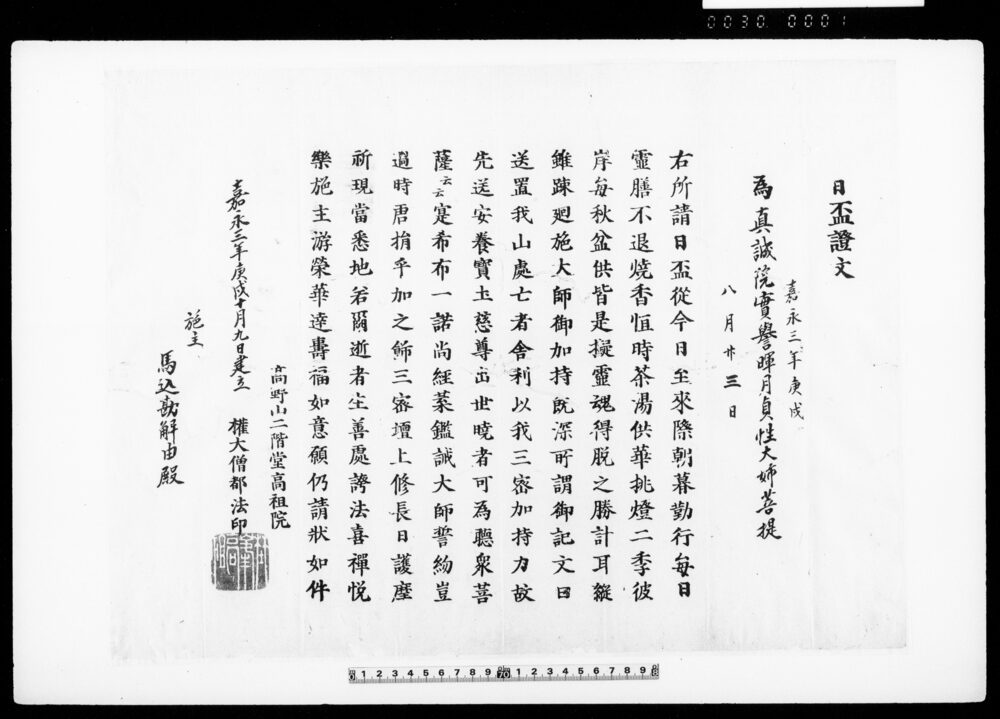 0030 0001
日盃證文
嘉永三年庚戌
為真誠院實譽暉月貞性大姉菩提
八月廿三日
右所請日盃從今日至來際朝暮勤行每日
靈膳不退燒香恒時茶湯供華挑燈二季彼
岸每秋盆供皆是擬靈魂得脱之勝計耳縱
雖踈廻施大師御加持既深所謂御記文曰
送置我山處亡者舍利以我三密加持力故
先送安養寶土慈尊出世曉者可為聽衆菩
薩云云寔希布一諾尚經菜鑑誠大師誓約豈
過時君捐乎加之飾三密壇上修長日護摩
祈現當悉地若爾逝者生善處誇法喜禪悦
樂施主游榮華達壽福如意願仍請狀如件
高野山二階堂高祖院
嘉永三年庚戌十月九日建立 權大僧都法印
施主
馬込勘解由殿
0 1 2 3 4 5 6 7 8 9 70 1 2 3 4 5 6 7 8 9